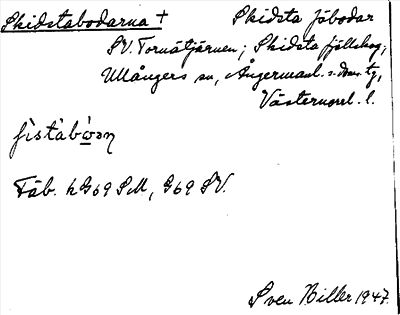 Skidstabodarna + Skidsta fäbodar
SV. Tornätjärnen; Skidsta fjällskog,
Ullångers sn, Ångermanl. s. doms. tg,
Västernorrl. l.
Fäb. hG69 SM, G69 SV.
Sven Biller 1947.